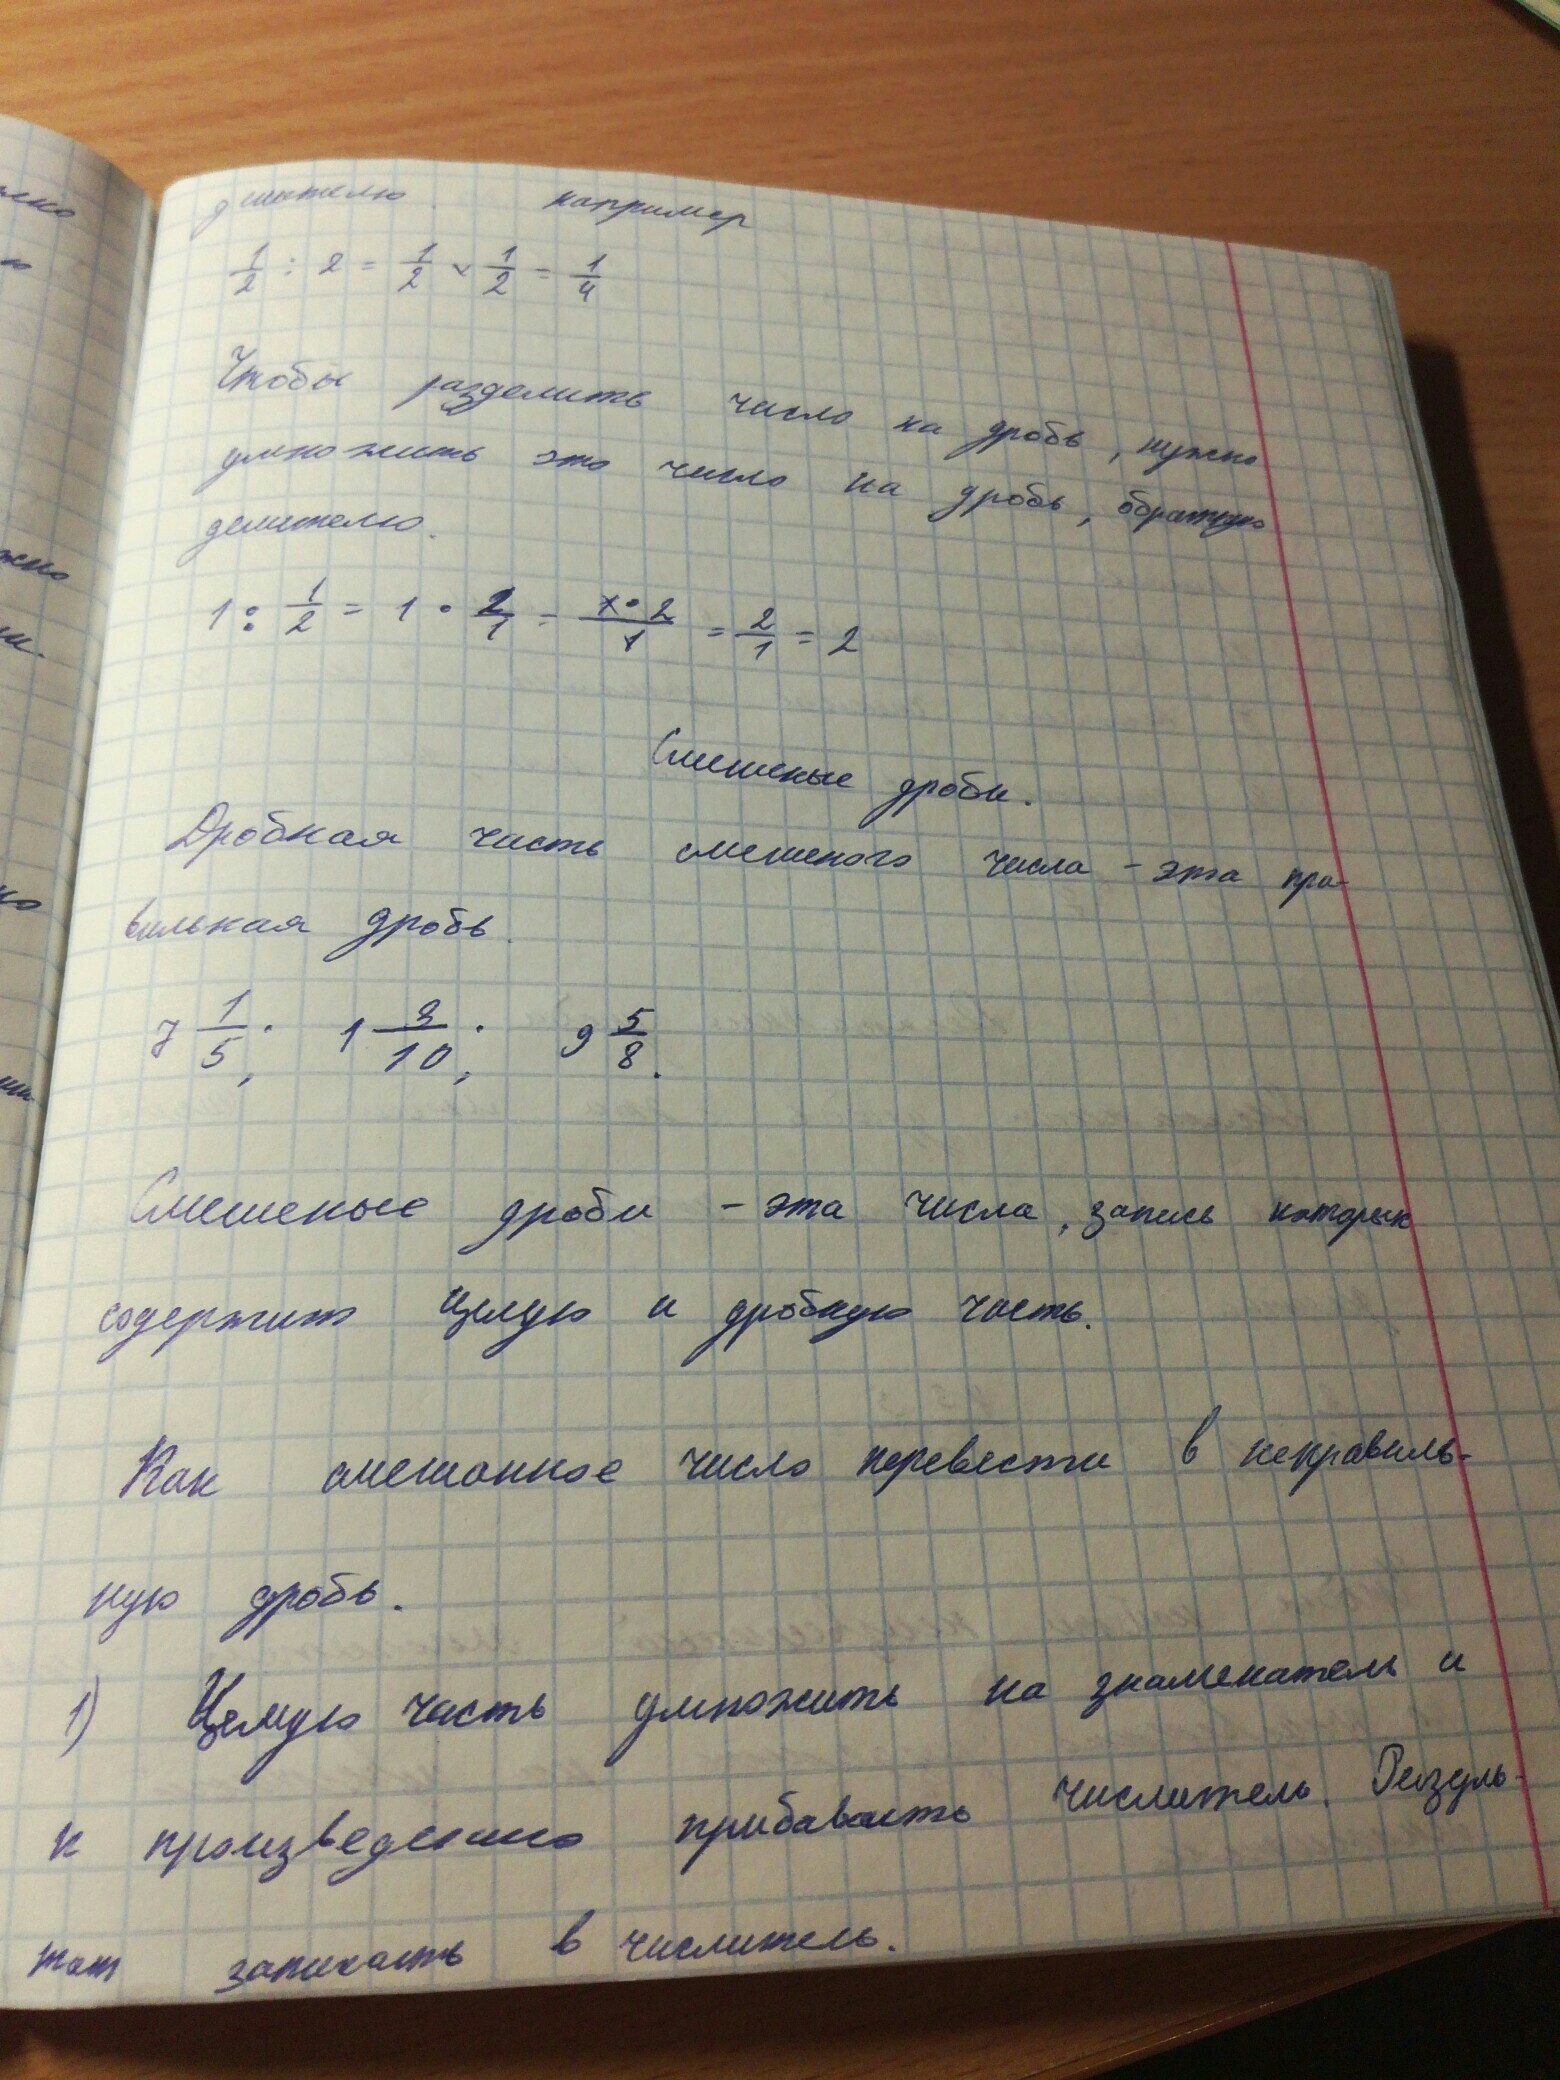 делителю. например
1/2 : 2 = 1/2 × 1/2 = 1/4
Чтобы разделить число на дробь, нужно
умножить это число на дробь, обратную
делителю.
1 : 1/2 = 1 · 2/1 = 1·2/1 = 2/1 = 2
Смешеные дроби.
Дробная часть смешеного числа - эта пра-
вильная дробь.
7 1/5; 1 8/10; 9 5/8.
Смешеные дроби - эта числа, запись которых
содержит целую и дробную часть.
Как смешанное число перевести в неправиль-
ную дробь.
1) Целую часть умножить на знаменатель и
к произведению прибавать числитель. Резуль-
тат записать в числитель.
жно